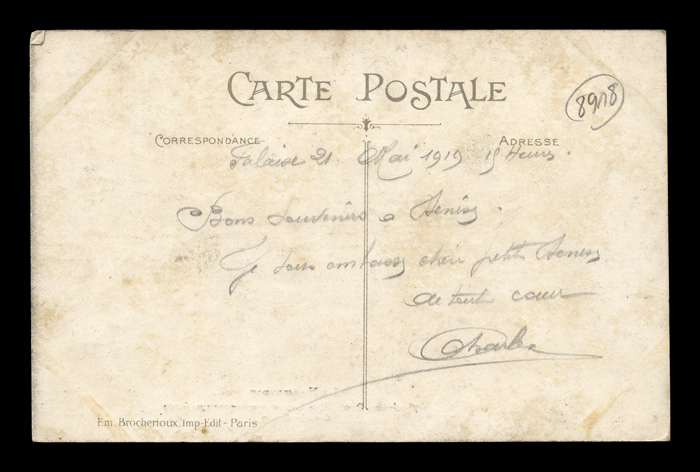 CARTE POSTALE
8918
CORRESPONDANCE
ADRESSE
Falaise 21 Mai 1919 15 Heures.
Bons Souvenirs a Denise.
Je vous embrasse cher petite Denise
de tout coeur
Charles
Em. Brocherioux Imp-Edit - Paris